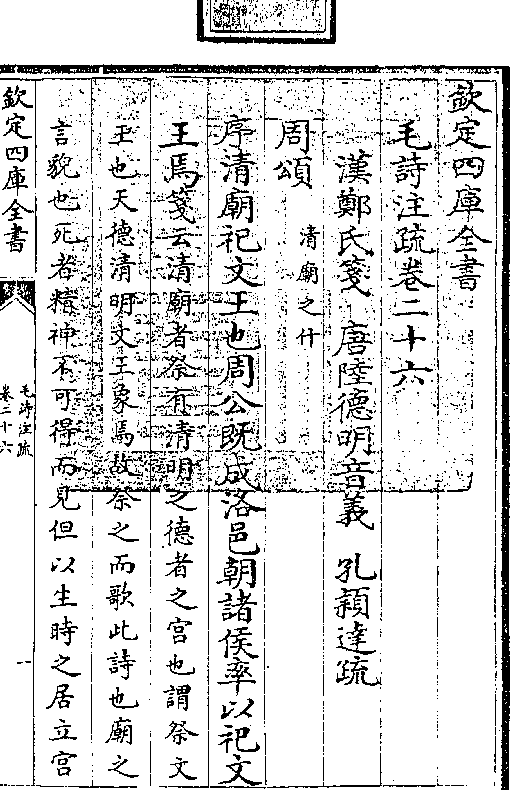 欽定四庫全書
毛詩注疏卷二十六
漢鄭氏箋 唐陸德明音義 孔穎達疏
周頌 清廟之什
序清廟祀文王也周公既成洛邑朝諸侯率以祀文
王焉箋云清廟者祭有清明之德者之宮也謂祭文
王也天德清明文王象焉故祭之而歌此詩也廟之
言貌也死者精神不可得而見但以生時之居立宮
欽定四庫全書
毛詩注疏
卷二十六
一